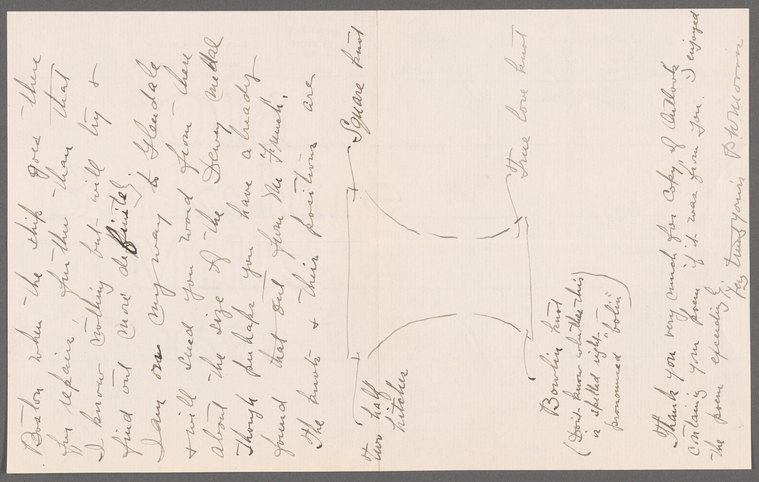 Boston when the ship goes there
for repairs, further than that
I know nothing but will try &
find out more definitely.
I am on my way to Glendale
& will send you word from there
about the size of the Dewey medal
though perhaps you have already
found that out from Mr French.
The knots & their positions are
Square knot
two half
hitches
True love knot
Bowlin knot
(Don't know whether this
is spelled right -
pronounced "bolin")
Thank you very much for copy of Outlook
containing your poem if it was from you. I enjoyed
the poem exceedingly.
Very truly yours